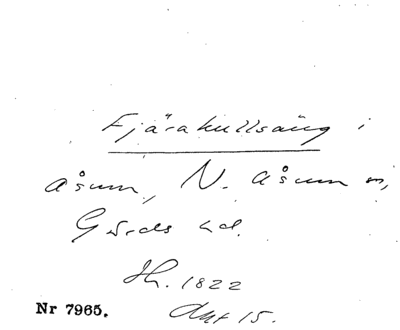 Fjärakullsäng i
Åsum, N. Åsum sn,
Gärds hd.
Sk. 1822
Akt 15.
Nr 7965.